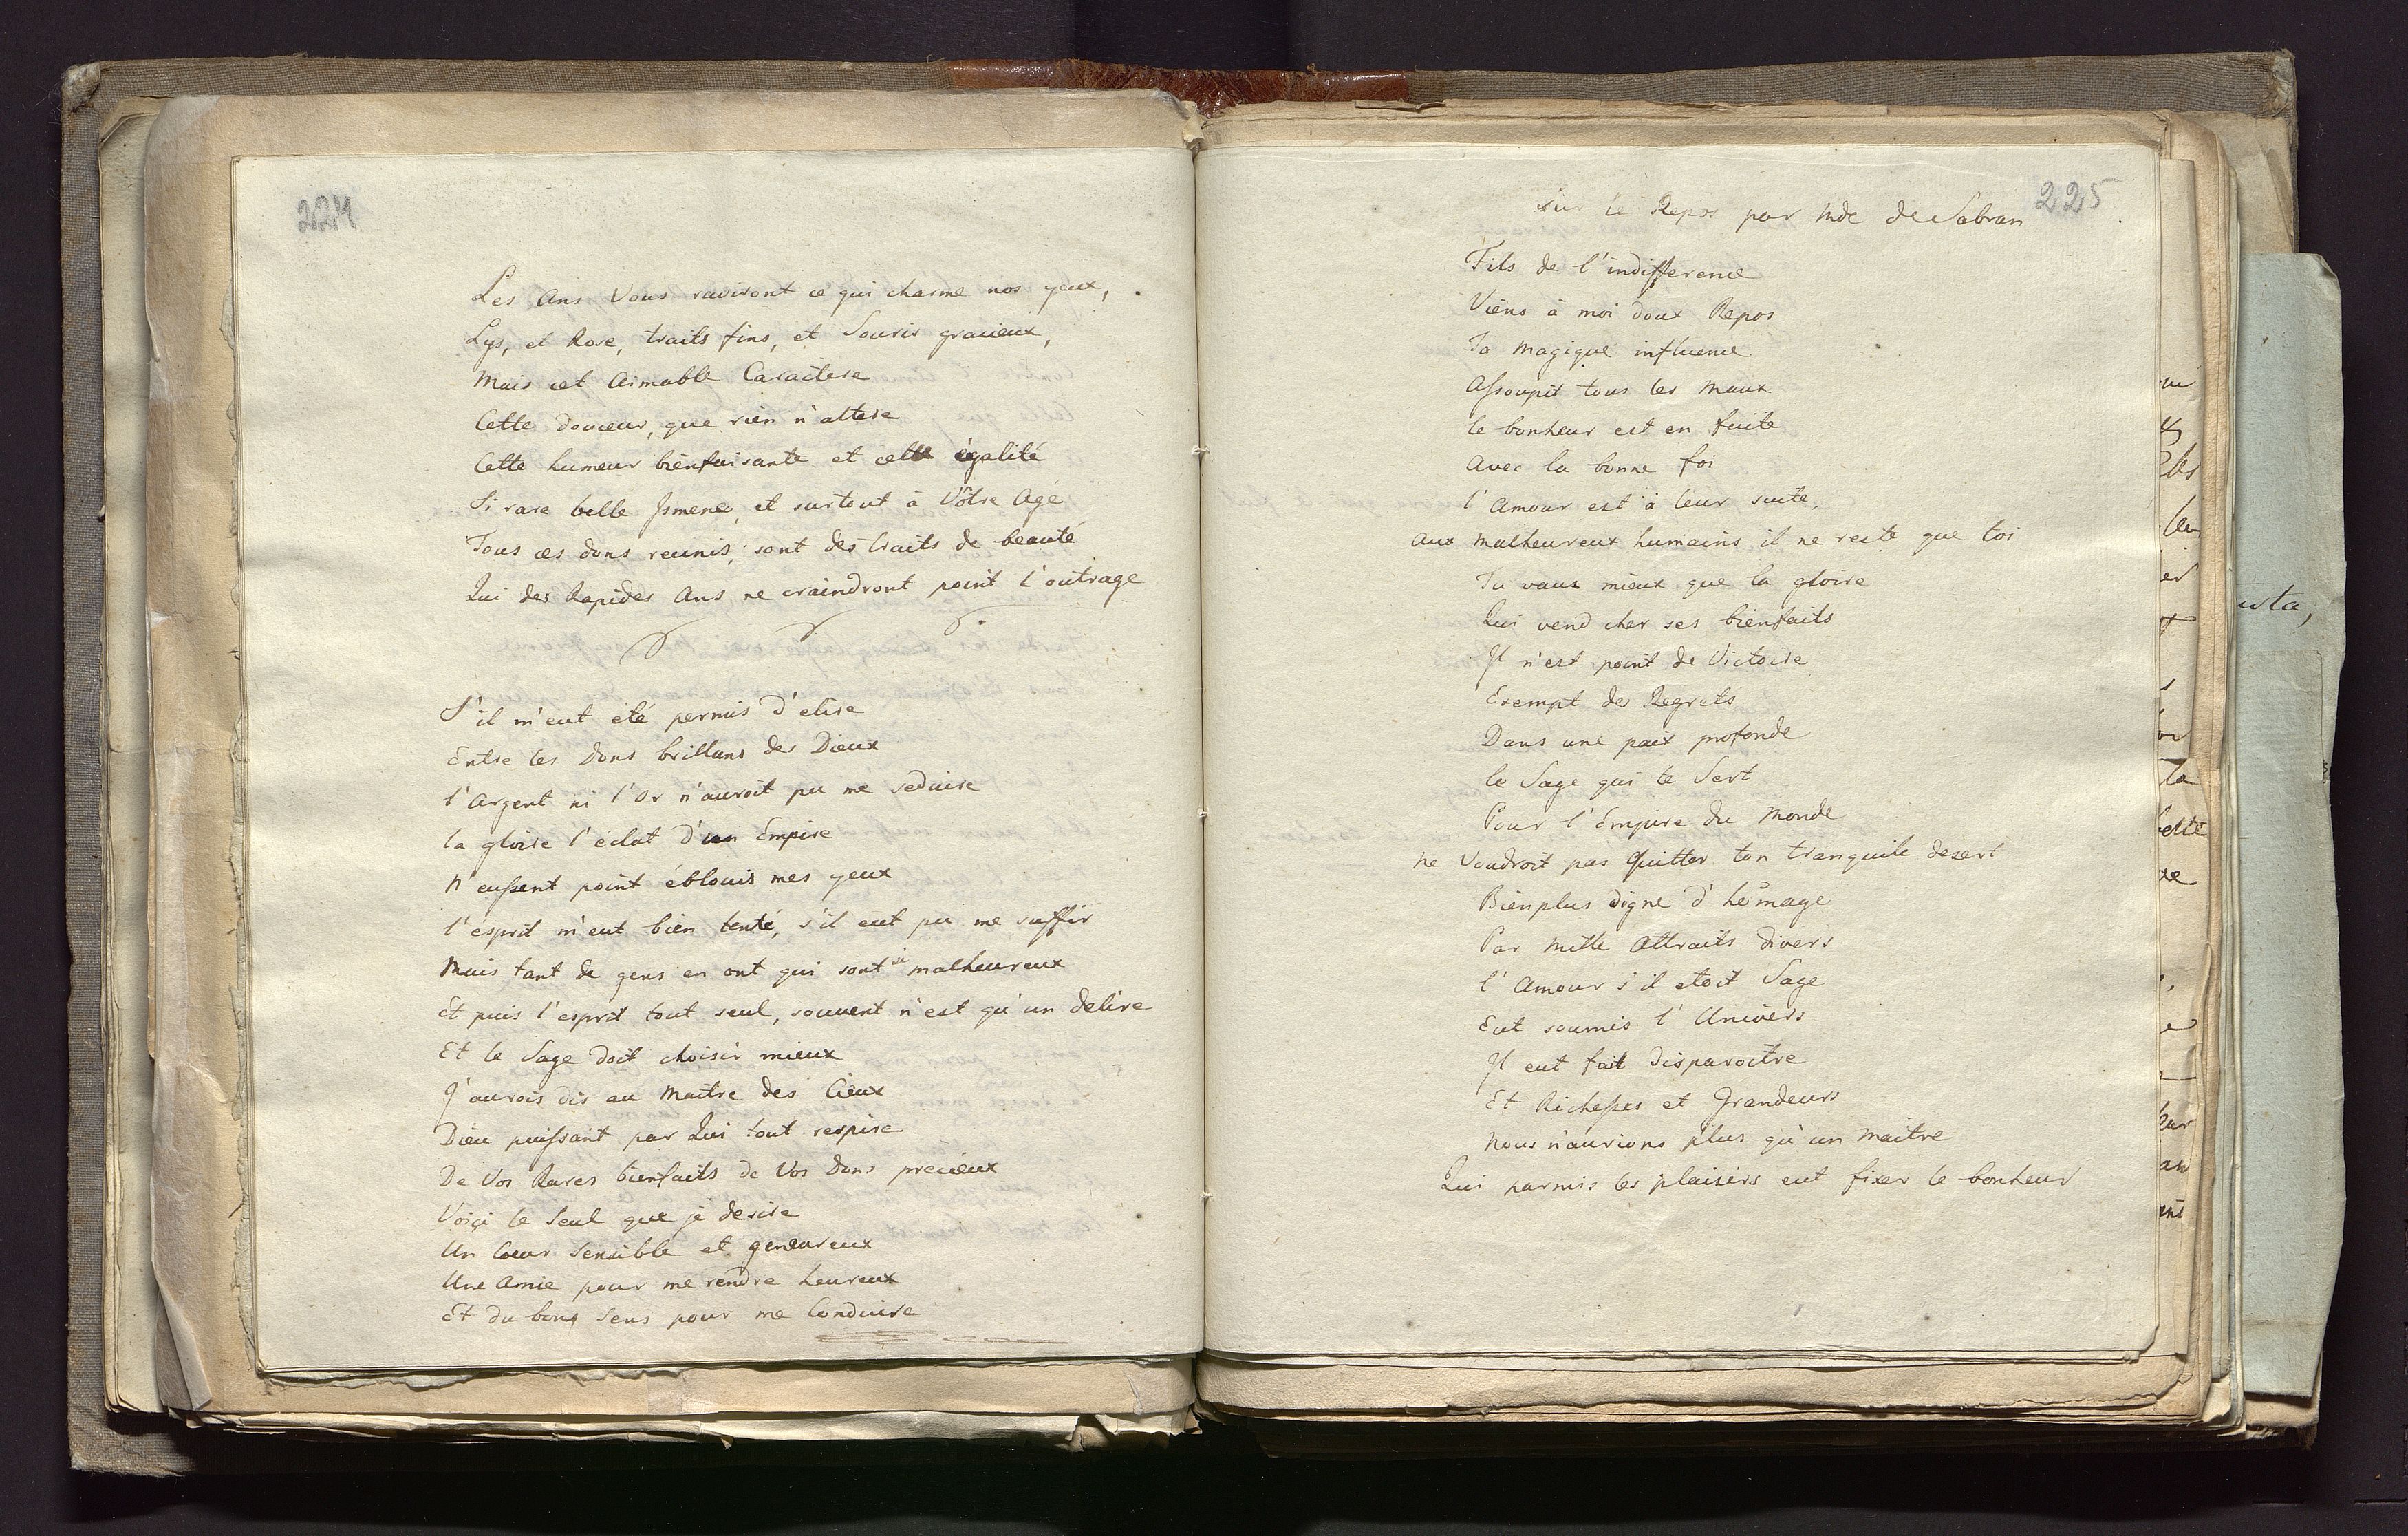 224
Les Ans Vous raviront ce qui charme nos yeux,
Lys, et Rose, traits fins, et Souris gracieux,
Mais cet Aimable Caractere
Cette douceur, que rien n'altere
Cette humeur bienfaisante et cette égalité
Si rare belle Ismene, et surtout à Vôtre Age
Tous ces dons reunis, sont des traits de beauté
Qui des Rapides Ans ne craindront point l'outrage
S'il m'eut été permis d'elire
Entre les Dons brillans des Dieux
l'Argent ni l'Or n'auroit pu me seduire
la gloire l'éclat d'un Empire
N'eussent point éblouis mes yeux
l'ésprit m'eut bien tenté, s'il eut pu me suffir
Mais tant de gens en ont qui sont si malheureux
Et puis l'esprit tout seul, souvent n'est qu'un delire
Et le Sage doit choisir mieux
J'aurois dis au Maitre des Cieux
Dieu puissant par Qui tout respire
De Vos Rares bienfaits de Vos Dons precieux
Voiçi le Seul que je desire
Un Coeur Sensible et genereux
Une Amie pour me rendre heureux
Et du bons Sens pour me Conduire
225
Sur le Repos par Mde de Sabran
Fils de l'indifference
Viens à moi doux Repos
Ta Magique influence
Assoupit tous les Maux
le bonheur est en fuite
Avec la bonne foi
l'Amour est à leur suite,
Aux Malheureux humains il ne reste que toi
Tu vaux mieux que la gloire
Qui vend cher ses bienfaits
Il n'est point de Victoire
Exempt des Regrets
Dans une paix profonde
le Sage qui te Sert
Pour l'Empire du Monde
ne Voudroit pas Quitter ton tranquile desert
Bien plus digne d'homage
Par Mille Attraits divers
l'Amour s'il etoit Sage
Eut soumis l'Univers
Il eut fait disparoitre
Et Richesses et Grandeurs
Nous n'aurions plus qu'un Maitre
Qui parmis les plaisirs eut fixer le bonheur